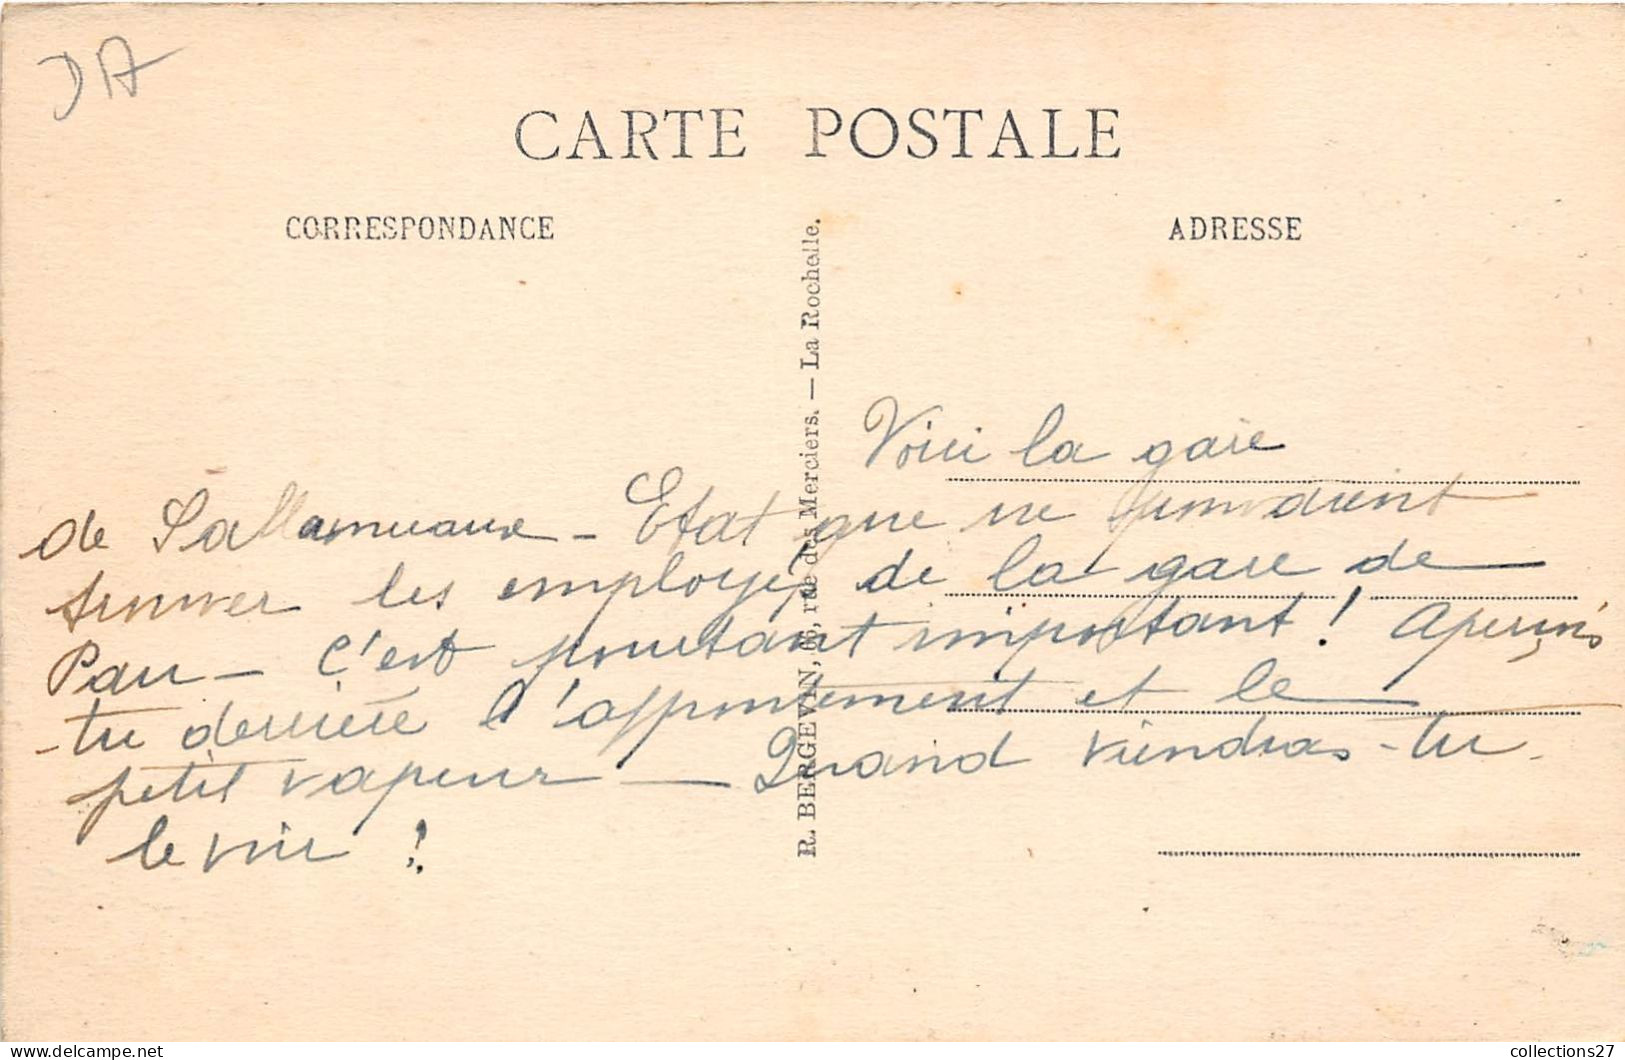 DA
CARTE POSTALE
CORRESPONDANCE
ADRESSE
R. BERGEVIN, rue des Merciers. — La Rochelle.
Voici la gare
de Sallamneaux - Etat que ne
trouver les employés de la gare de
Pau - C'est pourtant important ! Aperçois
-tu derrière l'appontement et le
petit vapeur — Quand viendras-tu
le voir ?
collections27